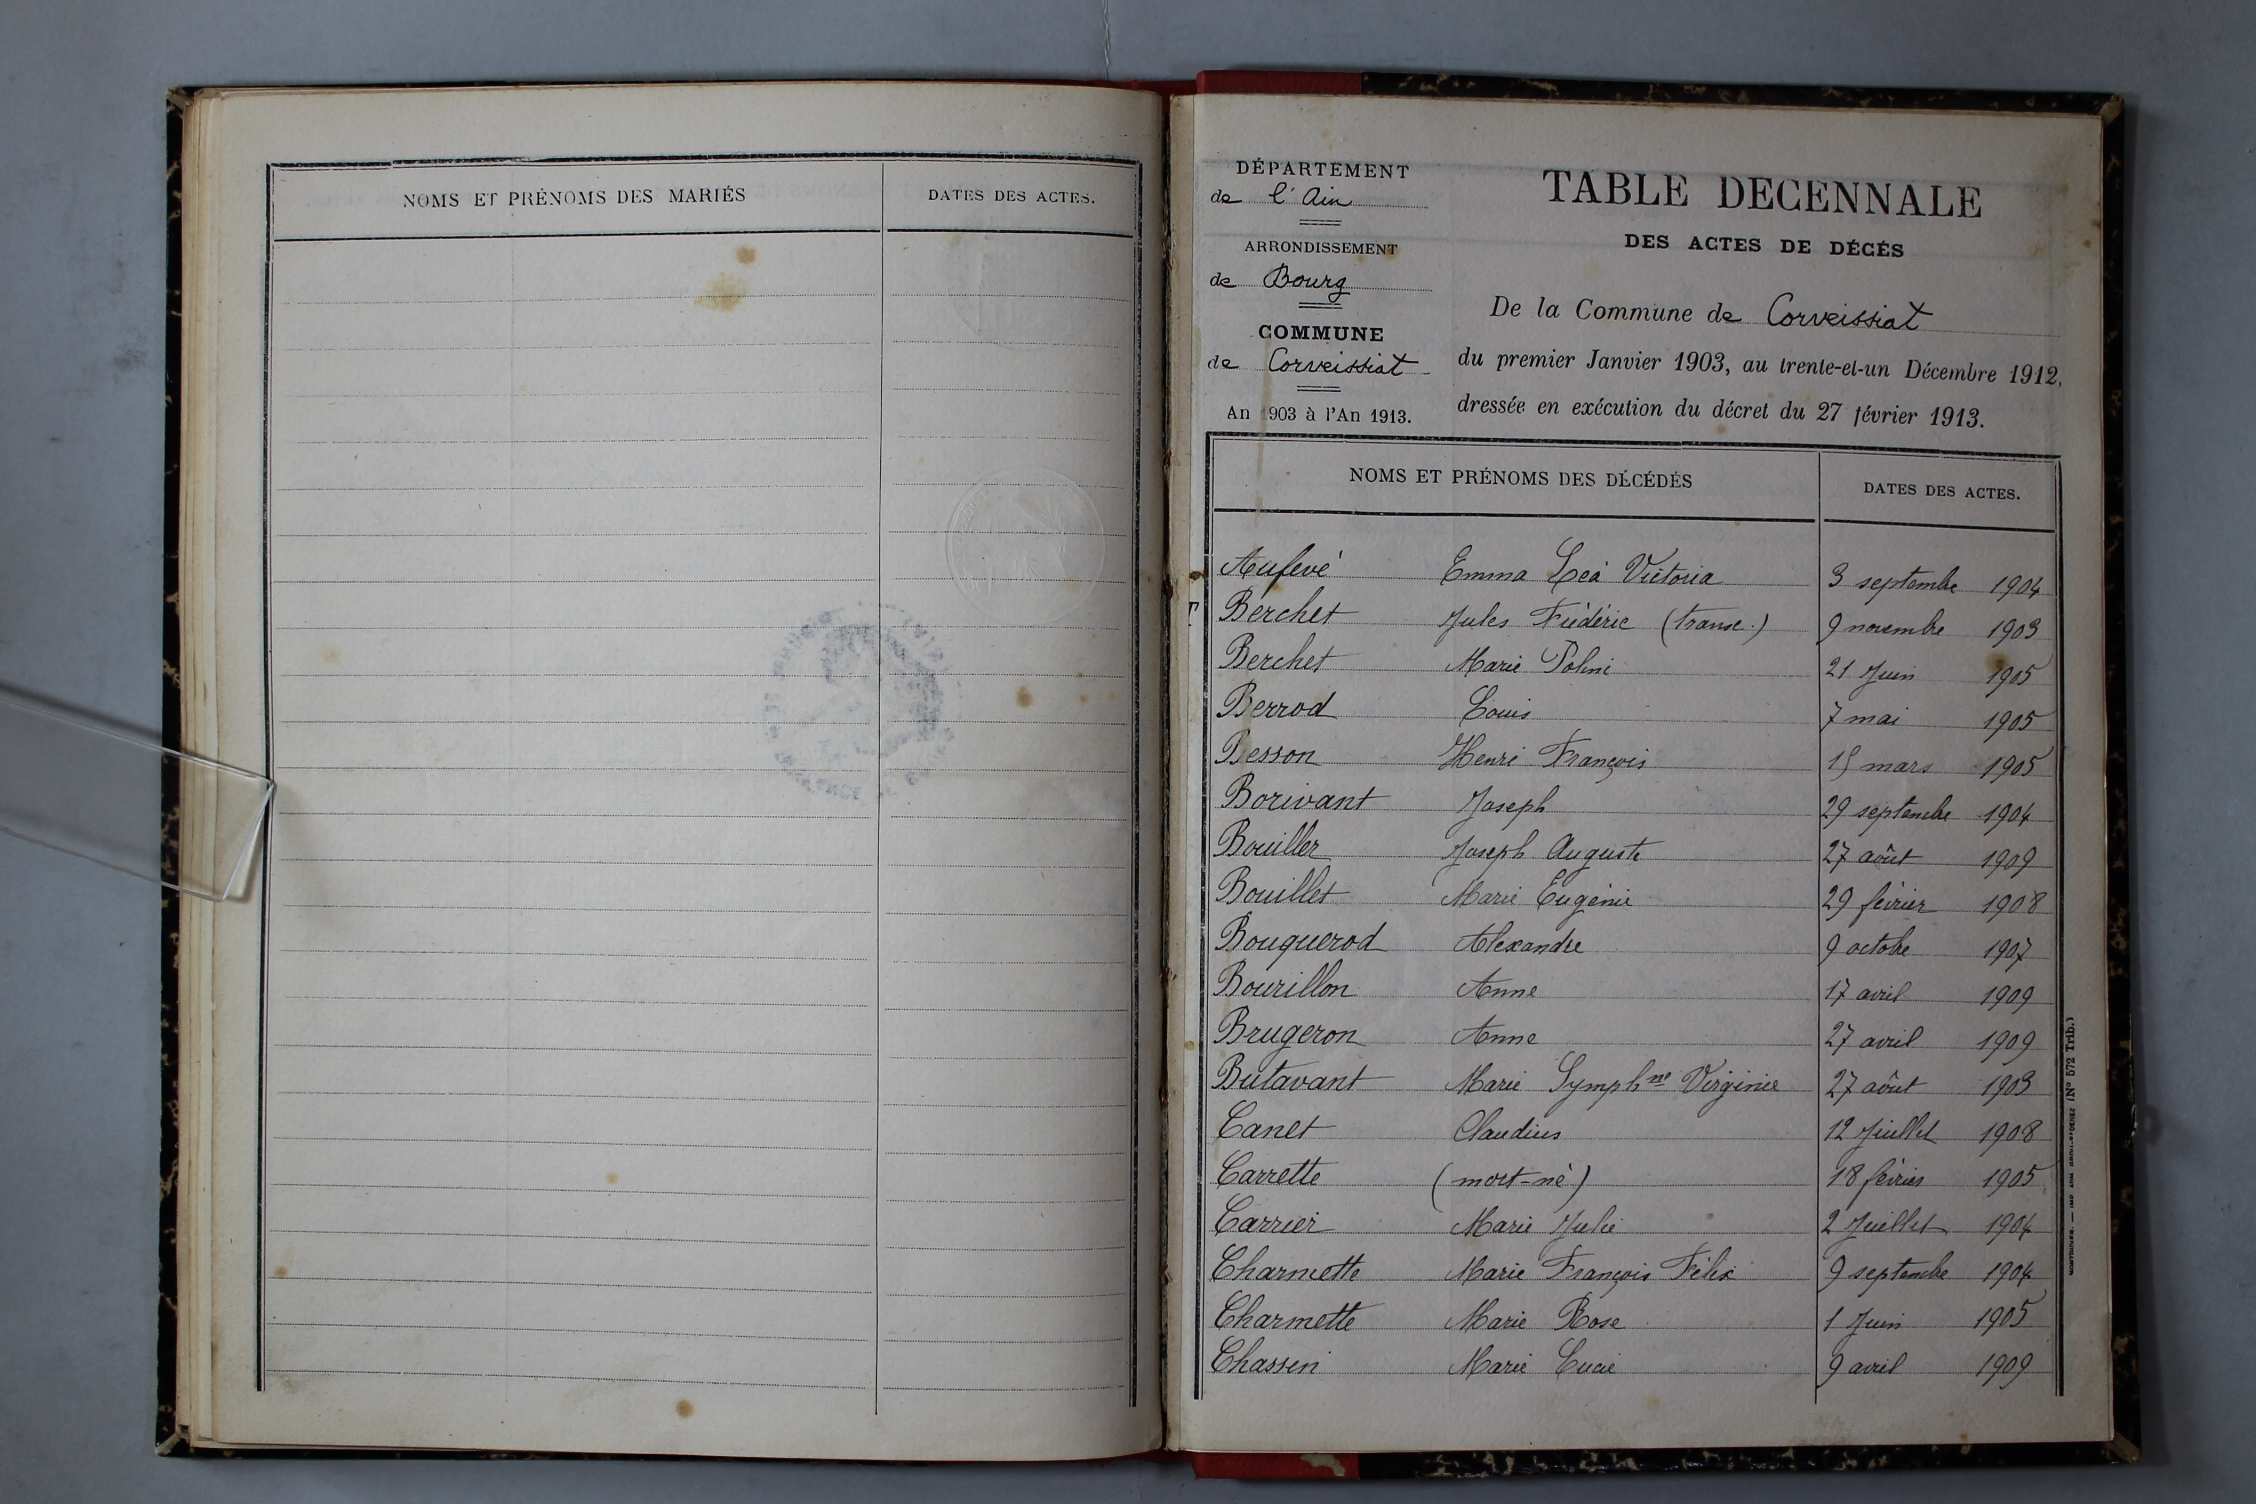 NOMS ET PRÉNOMS DES MARIÉS
DATES DES ACTES.
DÉPARTEMENT
de l'Ain
ARRONDISSEMENT
de Bourg
COMMUNE
de Corveissiat
An 1903 à l'An 1913.
TABLE DECENNALE
DES ACTES DE DÉCÉS
De la Commune de Corveissiat
du premier Janvier 1903, au trente-et-un Décembre 1912,
dressée en exécution du décret du 27 février 1913.
NOMS ET PRÉNOMS DES DÉCÉDÉS DATES DES ACTES.
Aufevé Emma Léa Victoria 3 septembre 1904
Berchet Jules Frédéric (transc.) 9 novembre 1903
Berchet Marie 21 Juin 1905
Berrod Louis 7 mai 1905
Besson Henri François 15 mars 1905
Borivant Joseph 29 septembre 1904
Bouiller Joseph Auguste 27 août 1909
Bouillet Marie Eugénie 29 février 1908
Bouquerod Alexandre 9 octobre 1907
Bourillon Anne 17 avril 1909
Brugeron Anne 27 avril 1909
Butavant Marie Symphne Virginie 27 août 1903
Canet Claudius 12 Juillet 1908
Carrette (mort-né) 18 février 1905
Carrier Marie Julie 2 Juillet 1904
Charmette Marie François Félix 9 septembre 1904
Charmette Marie Rose 1 Juin 1905
Chassin Marie Lucie 9 avril 1909
(No 572 Trib.)